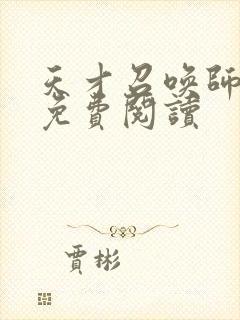 天才召喚師
免費閱讀
賈彬